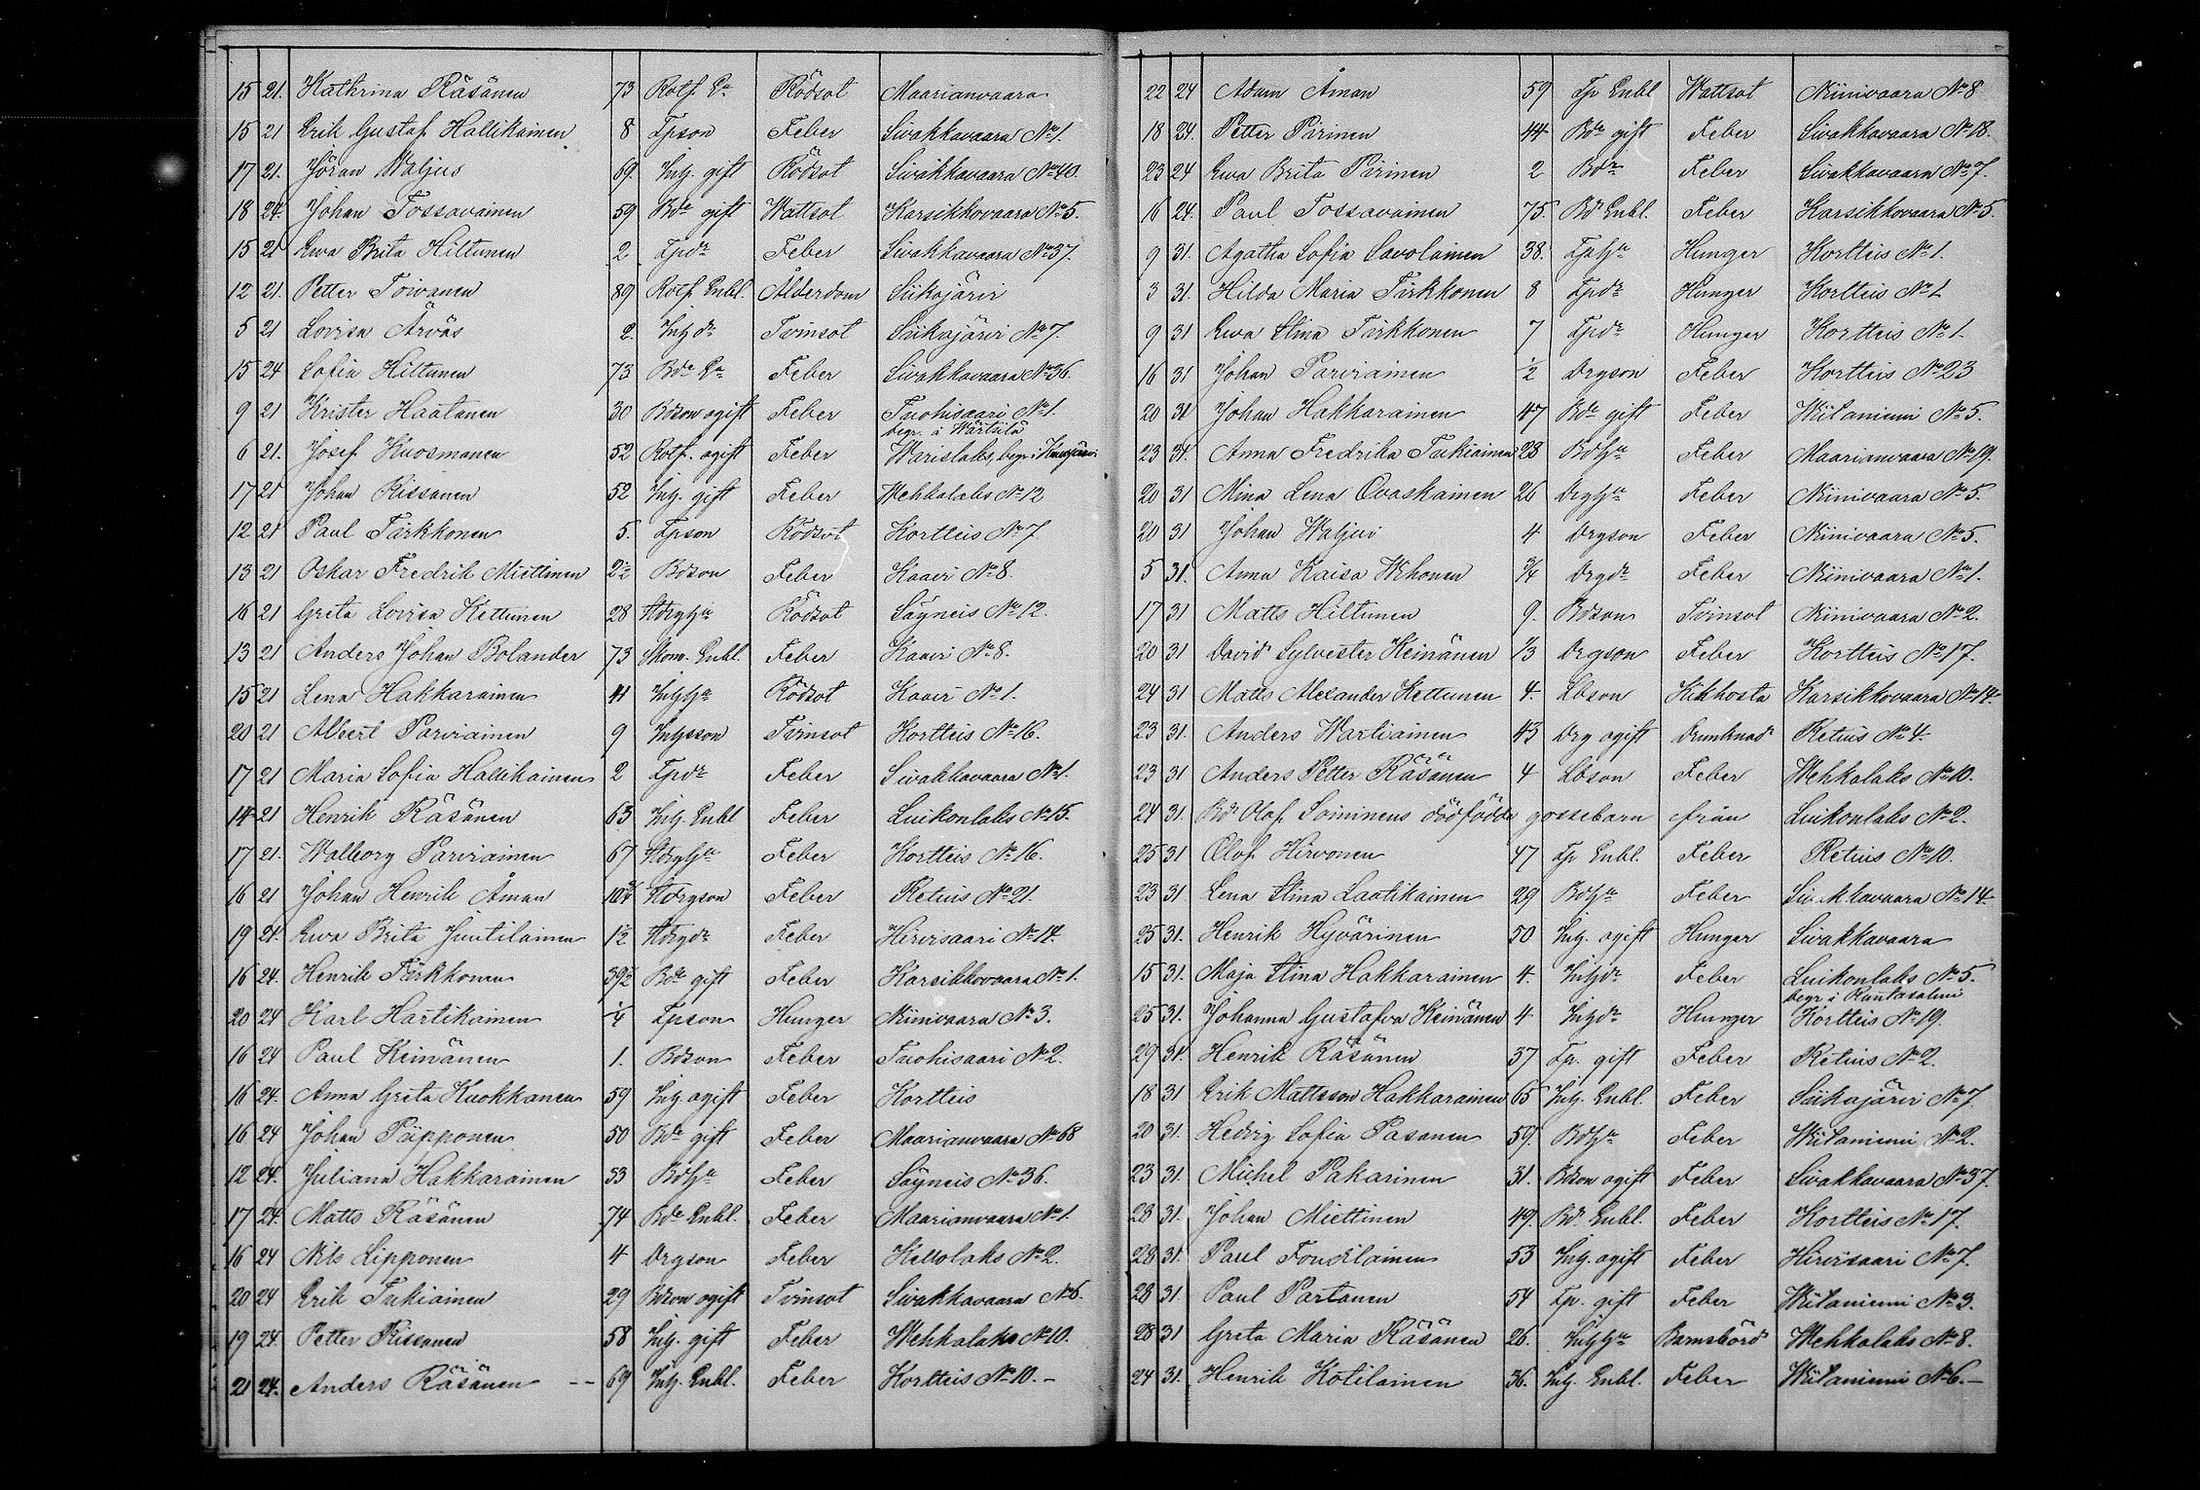 15 21. Kathrina Räsänen 73 Rotf. Ea Rödsot Maarianvaara
15 21 Erik Gustaf Hallikainen 8 Lpson Feber Sivakkavaara No 1.
17 21. Jöran Waljus 69. Inh. gift Rödsot Sivakkavaara No 40.
18 24. Johan Tossavainen 59 Bde gift Wattsot Karsikkovaara No 5.
15 21 Ewa Brita Hiltunen 2 Lpdr Feber Sivakkavaara No 37.
12 21. Petter Toivanen 89 Rotf. Enkl. Ålderdom Siikajärvi
5 21 Lovisa Ärväs 2. Inhdr Tvinsot Siikajärvi No 7.
15 24 Sofia Hiltunen 73 Bde Ea Feber Sivakkavaara No 36.
9 21 Krister Haatanen 30 Bdson ogift Feber Tuohisaari No 1.
begr. i Wärtsilä
6 21. Josef Kuosmanen 52 Rotf. ogift Feber Warislaks, begr. i
17 21 Johan Rissanen 52 Inh. gift Feber Wehkalaks No 12
12 21 Paul Tirkkonen 5. Lpson Rödsot Kortteis No 7.
13 21 Oskar Fredrik Miettinen 2 1/2 Bdson Feber Kaavi No 8.
16 21 Greta Lovisa Kettunen 28 Rödsot Säyneis No 12.
13 21 Anders Johan Bolander 73 Skom. Enkl. Feber Kaavi No 8.
15 21 Lena Hakkarainen 41 Inhha Rödsot Kaavi No 1.
20 21 Albert Parviainen 9 Inhsson Tvinsot Kortteis No 16.
17 21 Maria Sofia Hallikainen 2 Lpdr Feber Sivakkavaara No 1.
14 21 Henrik Räsänen 63 Inh. Enkl Feber Luikonlaks No 15.
17 21. Walborg Parviainen 67 Feber Kortteis No 16.
16 21 Johan Henrik Åman Feber Retuis No 21.
19 21. Ewa Brita Juutilainen 1 1/2 Feber Hirvisaari No 14.
16 24. Henrik Tirkkonen 39 1/2 Bde gift Feber Karsikkovaara No 1.
20 24 Karl Hartikainen 1/4 Lpson Hunger Niinivaara No 3.
16 24 Paul Keinänen 1. Bdson Feber Tuohisaari No 2.
16 24. Anna Greta Kuokkanen 59 Inh. ogift Feber Kortteis
16 24 Johan Piipponen 50 Bde gift Feber Maarianvaara No 68
12 24. Juliana Hakkarainen 33 Bdha Feber Säyneis No 36.
17 24. Matts Räsänen 74 Bde Enkl. Feber Maarianvaara No 1.
16 24 Nils Lipponen 4 Drgson Feber Kellolaks No 2.
20 24 Erik Tukiainen 29 Bdson ogift Tvinsot Sivakkavaara No 6.
19 24. Petter Rissanen 58 Inh. gift Feber Wehkalaks No 10.
21 24. Anders Räsänen -- 69 Inh. Enkl. Feber Kortteis No 10. -
22 24 Adam Åman 59 Lp Enkl Wattsot Niinivaara No 8
18 24. Petter Pirinen 44 Bde gift Feber Sivakkavaara No 18.
23 24 Ewa Brita Pirinen 2 Bdr Feber Sivakkavaara No 7.
16 24. Paul Tossavainen 75. Bd Enkl. Feber Karsikkovaara No 5.
9 31. Agatha Sofia Savolainen 38. Lpha Hunger Kortteis No 1.
3 31. Hilda Maria Tirkkonen 8 Lpdr Hunger Kortteis No 1
9 31 Ewa Stina Tirkkonen 7 Lpdr Hunger Kortteis No 1.
16 31 Johan Parviainen 1/2 Drgson Feber Kortteis No 23
20 31 Johan Hakkarainen 47 Bde gift Feber Wiitaniemi No 5.
23 31. Anna Fredrika Tukiainen 28 Bdha Feber Maarianvaara No 19.
20 31 Mina Lena Ovaskainen 26 Drgha Feber Niinivaara No 5.
20 31 Johan Waljus 4 Drgson Feber Niinivaara No 5.
5 31. Anna Kaisa Wihonen 3/4 Drgdr Feber Niinivaara No 1.
17 31 Matts Hiltunen 9. Bdson Tvinsot Niinivaara No 2.
20 31 David Sylvester Keinänen 1/3 Drgson Feber Kortteis No 17.
24 31 Matts Alexander Kettunen 4. Lbson Kikhosta Karsikkovaara No 14.
23 31. Anders Wartiainen 43 Drg ogift Drunknad Retuis No 4.
23 31 Anders Petter Räsänen 4 Lbson Feber Wehkalaks No 10.
24 31. Bd Olof Soininens dödfödda gossebarn från Luikonlaks No 2.
25 31 Olof Hirvonen 47 Lp Enkl. Feber Retuis No 10.
23 31 Lena Stina Laatikainen 29 Bdha Feber Sivakkavaara No 14
25 31. Henrik Hyvärinen 50 Inh. ogift Hunger Sivakkavaara
15 31. Maja Stina Hakkarainen 4. Inhdr Feber Luikonlaks No 5.
begr. i Rautasalmi
25 31. Johanna Gustafva Keinänen 4 Inhdr Hunger Kortteis No 19.
29 31. Henrik Räsänen 37 Lp. gift Feber Retuis No 2.
18 31 Erik Mattsson Hakkarainen 65 Inh. Enkl. Feber Siikajärvi No 7
20 31. Hedvig Sofia Pasanen 59. Bdha Feber Wiitaniemi No 2.
23 31. Michel Pakarinen 31. Bdson ogift Feber Sivakkavaara No 37.
28 31. Johan Miettinen 49. Bd. Enkl. Feber Kortteis No 17.
28 31. Paul Toudilainen 53 Inh. ogift Feber Hirvisaari No 7.
28 31. Paul Partanen 54 Lp. gift Feber Wiitaniemi No 3.
28 31 Greta Maria Räsänen 26. Inhha Barnsbörd Wehkalaks No 8.
24 31. Henrik Kotilainen 36. Inh. Enkl. Feber Wiitaniemi No 6. -